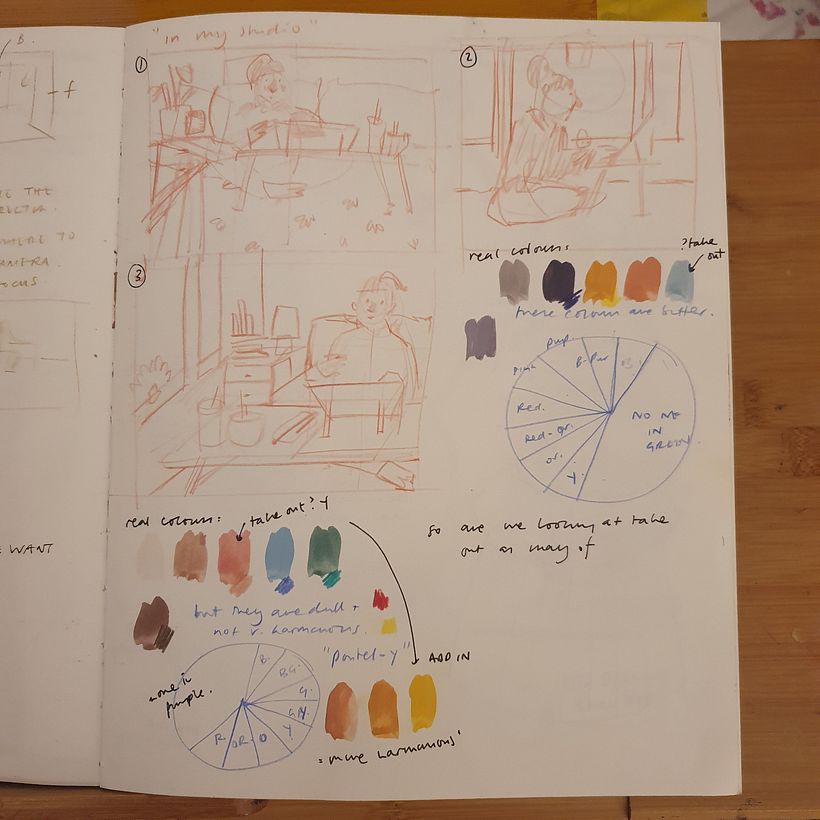 B.
f
"in my studio"
1
2
3
real colours:
?take
out
these colours are better.
purp.
B-Pur
B.
pink
Red.
Red-or.
or.
Y.
NO ME
IN
GREEN.
THE
WHERE TO
OCUS
WANT
real colours:
take out? Y
so are we looking at take
out as may of
but they are dull +
not v. harmonious.
"pastel-y"
ADD IN
none in
purple.
B.
BG.
G.
GY.
Y
O
OR
R
= more harmonious'